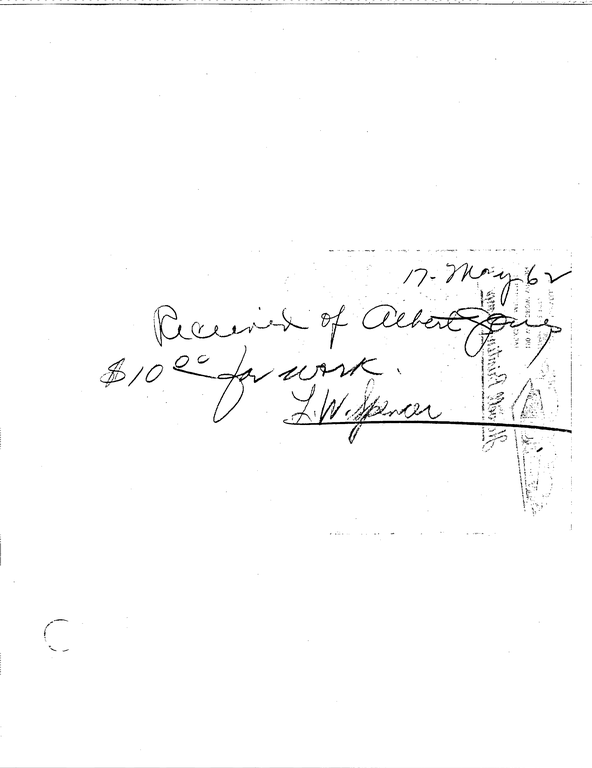 17- May 62
Received of Albert Jones
$10.00 for work.
L.W. Spencer